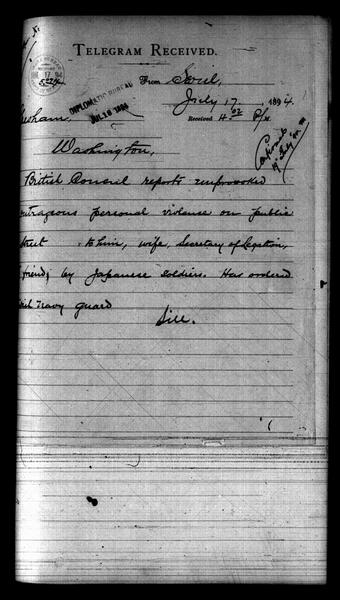 TELEGRAM RECEIVED.
From Seoul,
DIPLOMATIC BUREAU
JUL 18 1894
July 17, 1894.
Received 4 02 P/M.
Gresham,
Washington,
British Consul reports unprovoked
outrageous personal violense on public
street to him, wife, Secretary of Legation,
friend; by Japanese soldiers. Has ordered
navy guard
Sill.